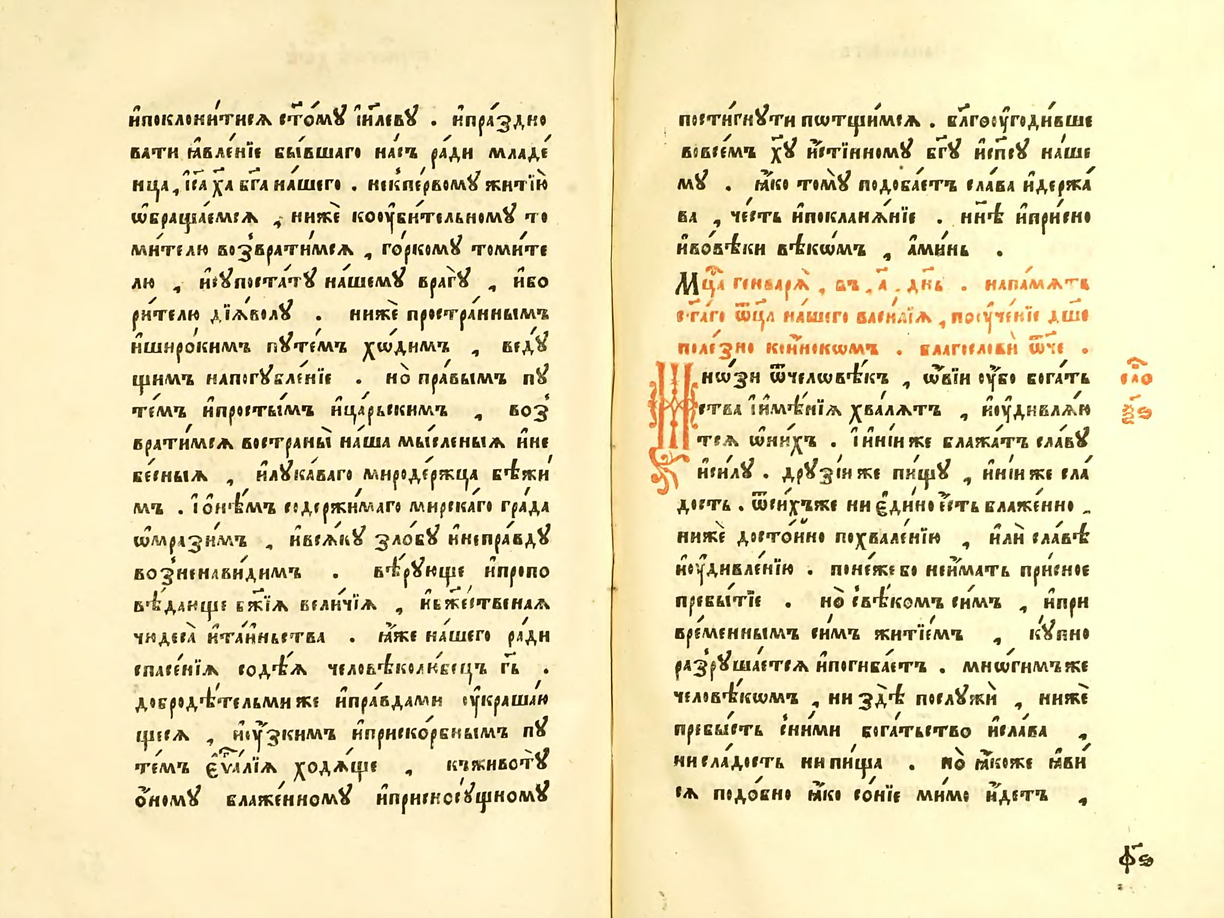 и҆поклони́тисѧ ст҃о́мꙋ і҆и҃левꙋ . и҆пра́здно
вати ꙗ҆вле́нїе бы́вшаго на́съ ра́ди младе́
нца, і҆с҃а х҃а бг҃а на́шего . некпе́рвомꙋ житїю̀
ѡ҆браща́емсѧ , нижѐ коᲂу҆би́тельномꙋ то
ми́телю возврати́мсѧ , го́ркомꙋ томи́те
лю , и҆сꙋпоста́тꙋ на́шемꙋ врагꙋ̀ , и҆бо
ри́телю дїѧ́волꙋ . нижѐ простра́ннымъ
и҆широ́кимъ пꙋте́мъ хѡ́димъ , ведꙋ́
щимъ напогꙋбле́нїе . но̀ пра́вымъ пꙋ
те́мъ и҆просты́мъ и҆ца́рьскимъ , воз
врати́мсѧ востраны̀ на́ша мы́сленыѧ и҆не
бе́сныѧ , и҆лꙋка́ваго мироде́ржца бѣжи́
мъ . І҆ѻ҆не́мъ содержи́маго мирска́го гра́да
ѡ҆мрази́мъ , и҆всѧ́кꙋ зло́бꙋ и҆непра́вдꙋ
возненави́димъ . вѣ́рꙋюще и҆пропо
вѣ́дающе бж҃їѧ вели́чїѧ , и҆бж҃е́ственаѧ
чюдеса̀ и҆та́иньства . ꙗ҆́же на́шего ра́ди
спасе́нїѧ содѣ́ѧ человѣколю́бецъ гь҃ .
добродѣ́тельмиже и҆пра́вдами ᲂу҆краша́ю
щесѧ , и҆ᲂу҆́зкимъ и҆приско́рбнымъ пꙋ
те́мъ є҆ѵ҃а́лїѧ ходѧ́ще , къживотꙋ̀
ѻ҆́номꙋ блаже́нномꙋ и҆присносꙋ́щномꙋ
пости́гнꙋти пѡтщи́мсѧ . бл҃гоᲂу҆годи́вше
вовсе́мъ х҃ꙋ и҆́стинномꙋ бг҃ꙋ и҆сп҃сꙋ на́ше
мꙋ . ꙗ҆́ко томꙋ̀ подоба́етъ сла́ва и҆держа́
ва , че́сть и҆покланѧ́нїе . нн҃ѣ и҆при́сно
и҆вовѣ́ки вѣкѡ́мъ , а҆ми́нь .
Мц҃а генварѧ̀ , въ , а҃ , дн҃ь . напа́мѧть
ст҃а́го ѿц҃а на́шего васи́лїѧ , поᲂу҆че́нїе дш҃е
поле́зно кои́нокѡмъ . благословѝ ѿ́че .
Мно́зи ѿчелѡвѣ́къ , ѡ҆ві́и ᲂу҆́бо бога́ть
ства і҆и҆мѣ́нїѧ хва́лѧтъ , и҆ᲂу҆дивлѧ́ю
тсѧ ѡ҆ни́хъ . І҆ині́и же блажа́тъ сла́вꙋ
и҆си́лꙋ . дрꙋзі́иже пи́щꙋ , и҆ні́и же сла́
дость . ѿси́хъже ни є҆ди́но е҆́сть блаже́нно .
нижѐ досто́йно похвале́нїю , и҆лѝ сла́вѣ
и҆ᲂу҆дивле́нїю . поне́жебо неи҆́мать при́сное
пребы́тїе . но̀ свѣ́комъ си́мъ , и҆при
вре́меннымъ си́мъ житїе́мъ , кꙋ́пно
разрꙋша́етсѧ и҆погиба́етъ . мно́гимъже
человѣ́кѡмъ , ни здѣ̀ послꙋжѝ , нижѐ
пребы́сть сни́ми бога́тьство и҆сла́ва ,
нисла́дость нипи́ща . но̀ ꙗ҆́коже ꙗ҆ви́
сѧ подо́бно ꙗ҆́ко со́нїе ми́мо и҆́детъ ,
сло
н҃ѕ
ф҃ѕ